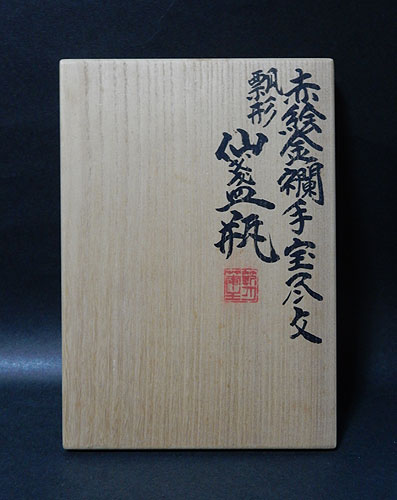 赤絵金襴手宝尽文
瓢形
仙盞瓶